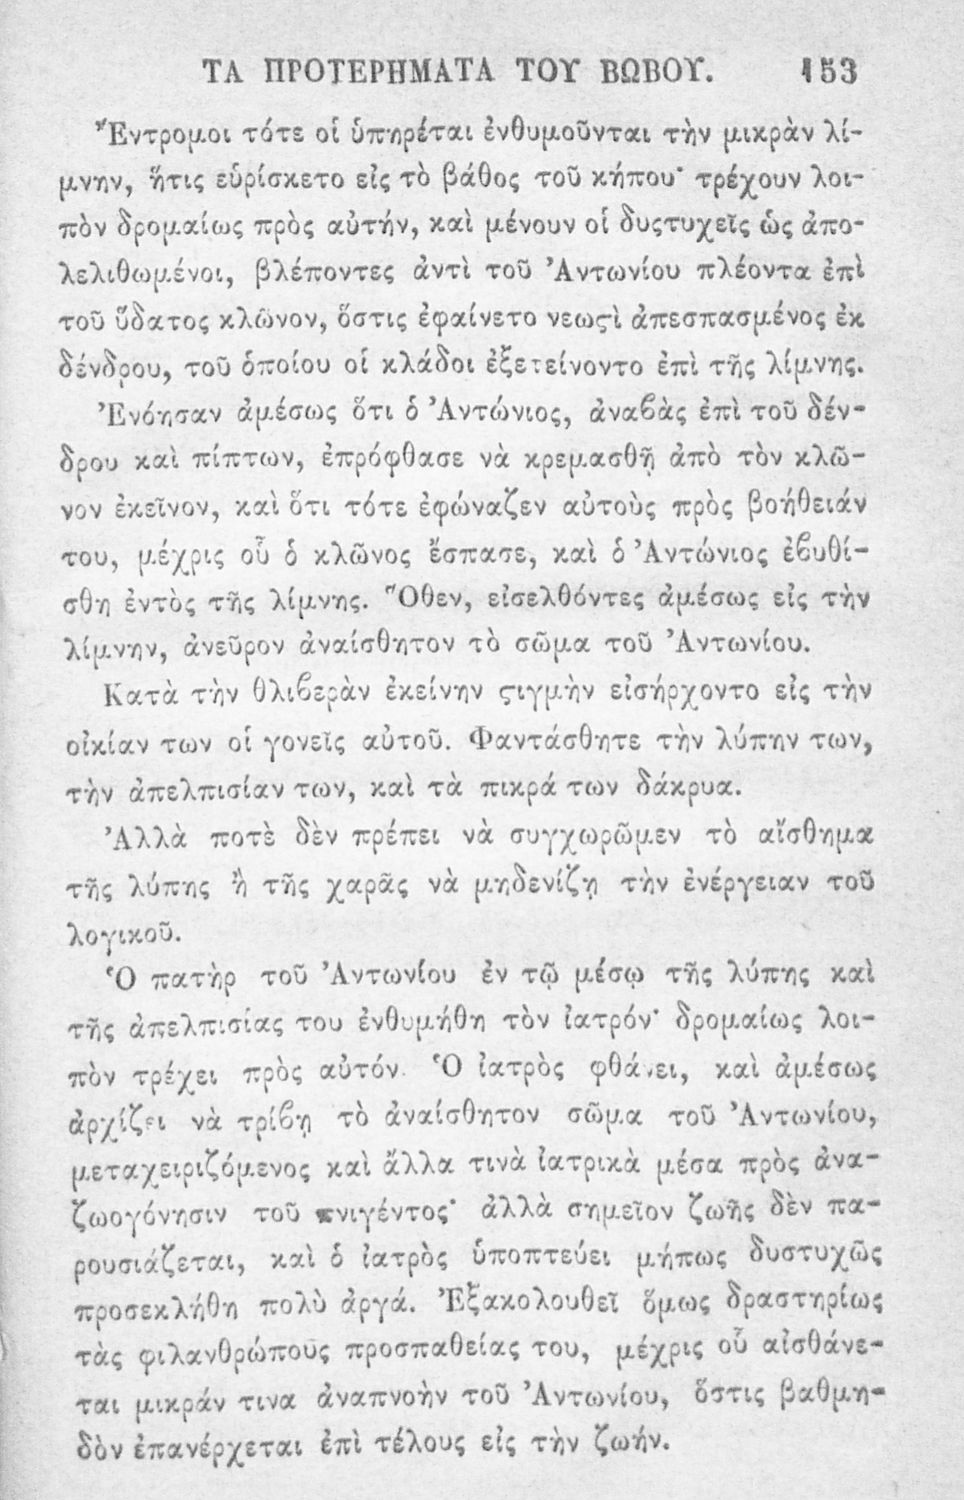 ΤΑ ΠΡΟΤΕΡΗΜΑΤΑ ΤΟΥ ΒΩΒΟΥ. 153
Ἔντρομοι τότε οἱ ὑπηρέται ἐνθυμοῦνται τὴν μικρὰν λί-
μνην, ἥτις εὑρίσκετο εἰς τὸ βάθος τοῦ κήπου· τρέχουν λοι-
πὸν δρομαίως πρὸς αὐτήν, καὶ μένουν οἱ δυςτυχεῖς ὡς ἀπο-
λελιθωμένοι, βλέποντες ἀντὶ τοῦ Ἀντωνίου πλέοντα ἐπὶ
τοῦ ὕδατος κλῶνον, ὅστις ἐφαίνετο νεωϛὶ ἀπεσπασμένος ἐκ
δένδρου, τοῦ ὁποίου οἱ κλάδοι ἐξετείνοντο ἐπὶ τῆς λίμνης.
Ἐνόησαν ἀμέσως ὅτι ὁ Ἀντώνιος, ἀναϐὰς ἐπὶ τοῦ δέν-
δρου καὶ πίπτων, ἐπρόφθασε νὰ κρεμασθῇ ἀπὸ τὸν κλῶ-
νον ἐκεῖνον, καὶ ὅτι τότε ἐφώναζεν αὐτοὺς πρὸς βοήθειάν
του, μέχρις οὗ ὁ κλῶνος ἔσπασε, καὶ ὁ Ἀντώνιος ἐϐυθί-
σθη ἐντὸς τῆς λίμνης. Ὅθεν, εἰσελθόντες ἀμέσως εἰς τὴν
λίμνην, ἀνεῦρον ἀναίσθητον τὸ σῶμα τοῦ Ἀντωνίου.
Κατὰ τὴν θλιϐερὰν ἐκείνην ϛιγμὴν εἰσήρχοντο εἰς τὴν
οἰκίαν των οἱ γονεῖς αὐτοῦ. Φαντάσθητε τὴν λύπην των,
τὴν ἀπελπισίαν των, καὶ τὰ πικρά των δάκρυα.
Ἀλλὰ ποτὲ δὲν πρέπει νὰ συγχωρῶμεν τὸ αἴσθημα
τῆς λύπης ἢ τῆς χαρᾶς νὰ μηδενίζῃ τὴν ἐνέργειαν τοῦ
λογικοῦ.
Ὁ πατὴρ τοῦ Ἀντωνίου ἐν τῷ μέσῳ τῆς λύπης καὶ
τῆς ἀπελπισίας του ἐνθυμήθη τὸν ἰατρόν· δρομαίως λοι-
πὸν τρέχει πρὸς αὐτόν. Ὁ ἰατρὸς φθάνει, καὶ ἀμέσως
ἀρχίζει νὰ τρίϐῃ τὸ ἀναίσθητον σῶμα τοῦ Ἀντωνίου,
μεταχειριζόμενος καὶ ἄλλα τινὰ ἰατρικὰ μέσα πρὸς ἀνα-
ζωογόνησιν τοῦ πνιγέντος· ἀλλὰ σημεῖον ζωῆς δὲν πα-
ρουσιάζεται, καὶ ὁ ἰατρὸς ὑποπτεύει μήπως δυστυχῶς
προσεκλήθη πολὺ ἀργά. Ἐξακολουθεῖ ὅμως δραστηρίως
τὰς φιλανθρώπους προσπαθείας του, μέχρις οὗ αἰσθάνε-
ται μικράν τινα ἀναπνοὴν τοῦ Ἀντωνίου, ὅστις βαθμη-
δὸν ἐπανέρχεται ἐπὶ τέλους εἰς τὴν ζωήν.